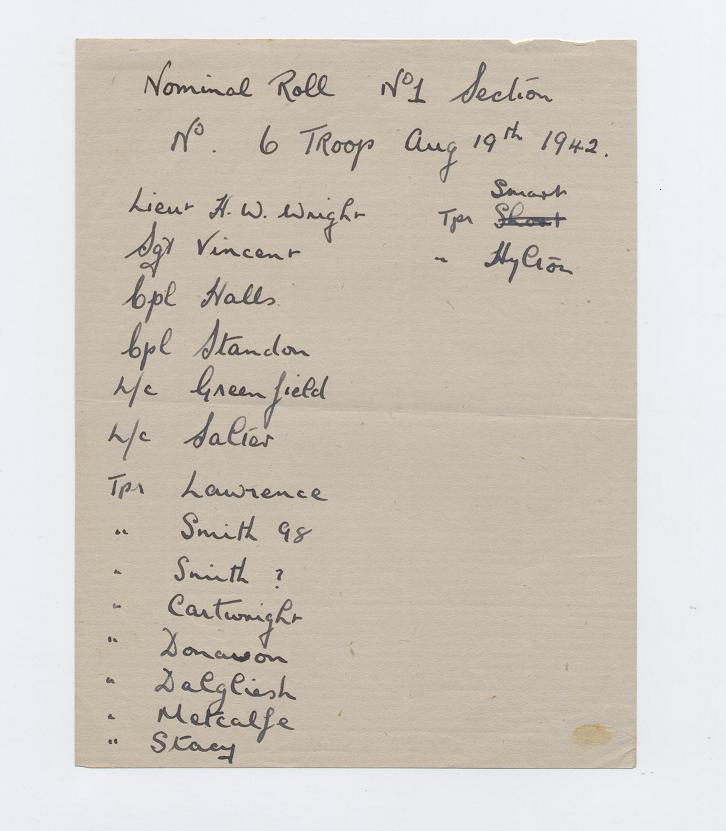 Nominal Roll No1 Section
No. 6 Troop Aug 19th 1942.
Lieut H. W. Wright
Sgt Vincent
Cpl Halls
Cpl Standon
L/c Greenfield
L/c Salter
Tpr Lawrence
" Smith 98
" Smith ?
" Cartwright
" Donawon
" Dalgliesh
" Metcalfe
" Stacy
Smart
Tpr Shoot
" Hylton